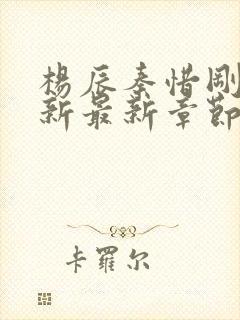 楊辰秦惜剛
新最新章節
卡羅尔